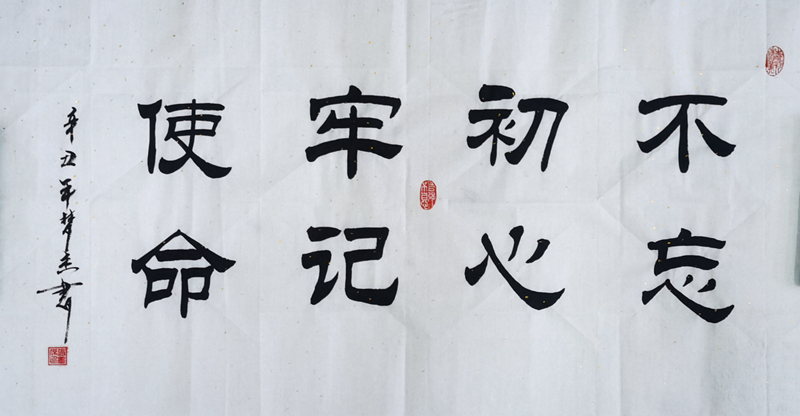 不忘
初心
牢记
使命
辛丑年梦杰书